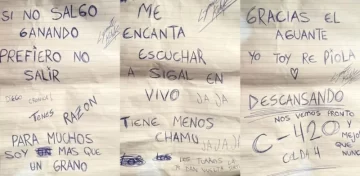 SI NO SALGO
GANANDO
PREFIERO NO
SALIR
TENES RAZON
PARA MUCHOS
SOY MAS QUE
UN GRANO
ME
ENCANTA
ESCUCHAR
A SIGAL EN
VIVO JA JA
TIENE MENOS
CHAMU JA JA JA
GRACIAS EL
AGUANTE
YO TOY RE PIOLA
DESCANSANDO
NOS VEMOS PRONTO
Y MEJOR
QUE NUNCA
C-420
CELDA 4